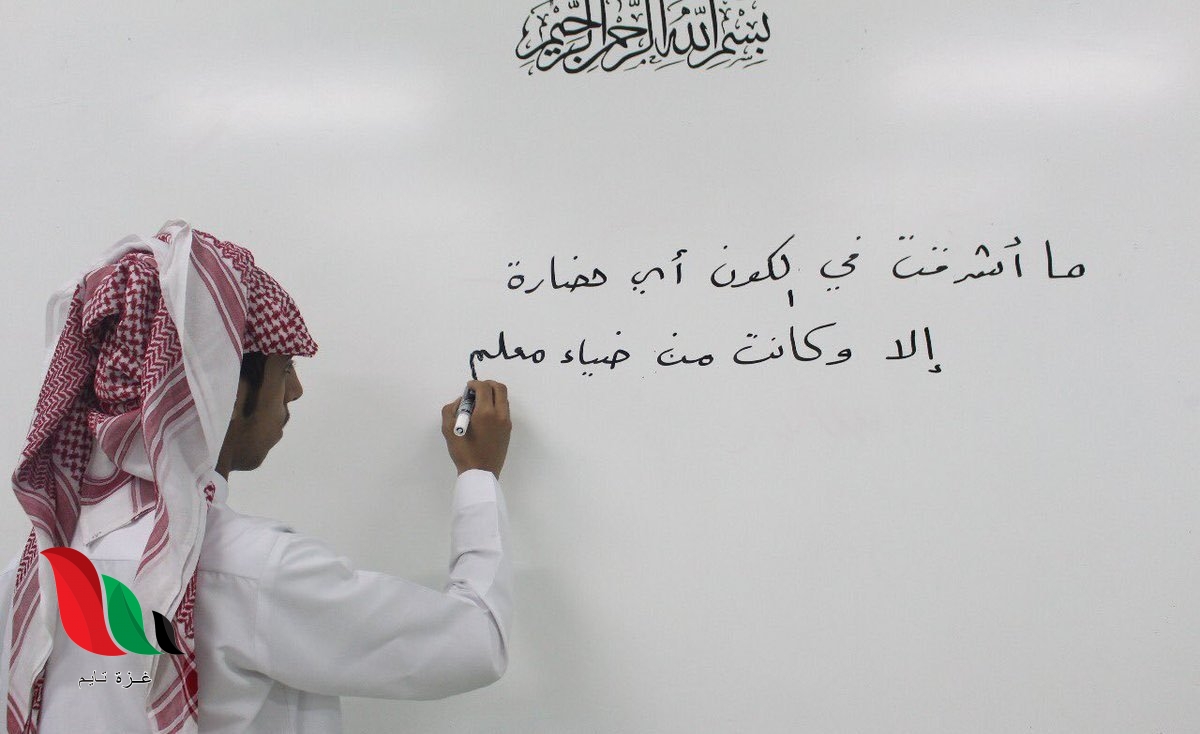 بِسْمِ اللَّهِ الرَّحْمَنِ الرَّحِيمِ
ما أشرقت في الكون أي حضارة
إلا وكانت من ضياء معلم
غزة تايم